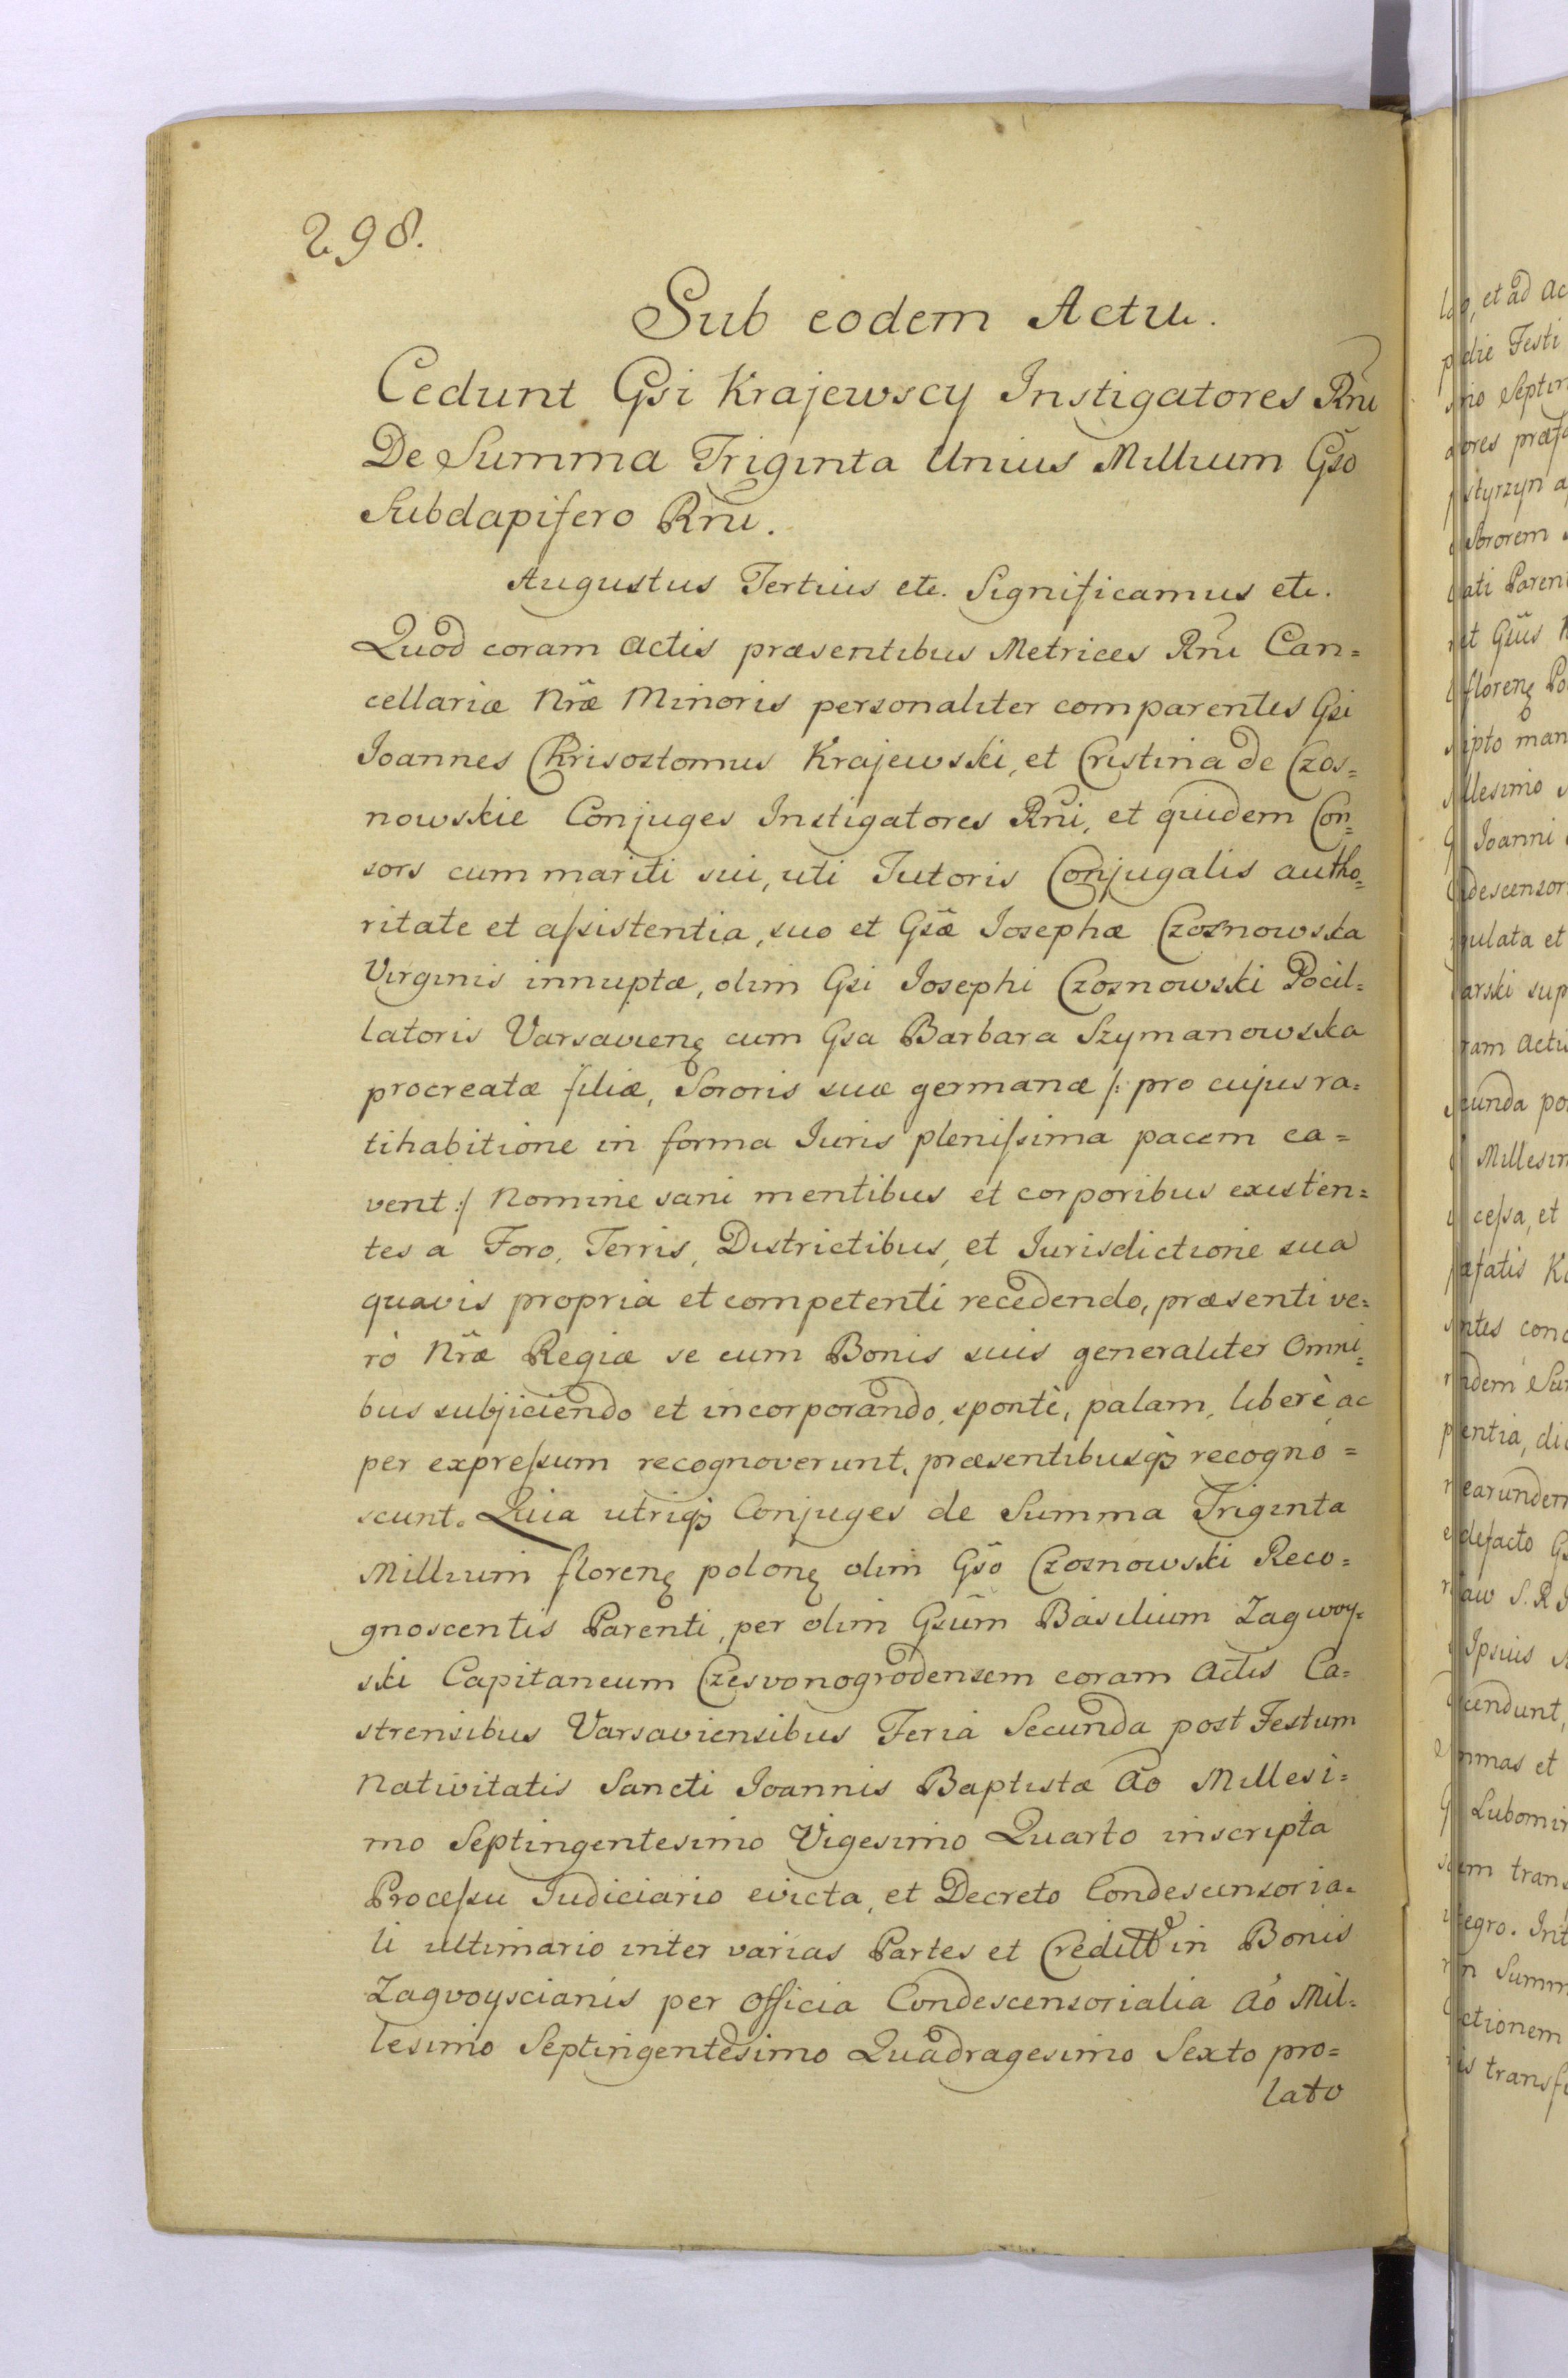 298.
Sub eodem Actu.
Cedunt Gsi Krajewscy Instigatores Rñi
De Summa Triginta Unius Millium Gsõ
Subdapifero Rñi.
Augustus Tertius etc. Significamus etc.
Quod coram actis præsentibus Metrices Rñi Can=
cellariæ Nræ̃ Minoris personaliter comparentes Gsi
Joannes Chrisostomus Krajewski, et Cristina de Czos=
nowskie Conjuges Instigatores Rñi, et quidem Con=
sors cum mariti sui, uti Tutoris Conjugalis autho=
ritate et aſsistentia, suo et Gsæ̃ Josephæ Czosnowska
Virginis innuptæ, olim Gsi Josephi Czosnowski Pocil=
latoris Varsavienę cum Gsa Barbara Szymanowska
procreatæ filiæ, Sororis suæ germanæ /: pro cujus ra=
tihabitione in forma Juris pleniſsima pacem ca=
vent :/ Nomine sani mentibus et corporibus existen=
tes a Foro, Terris, Districtibus, et Jurisdictione sua
quavis propria et competenti recedendo, præsenti ve=
rò Nræ̃ Regiæ se cum Bonis suis generaliter Omni=
bus subjiciendo et incorporando, spontè, palam, liberè, ac
per expreſsum recognoverunt, præsentibusqꝫ recogno=
scunt. Quia utriqꝫ Conjuges de Summa Triginta
Millium florenę polonę olim Gsõ Czosnowski Reco=
gnoscentis Parenti, per olim Gsũm Basilium Zagwoy=
ski Capitaneum Czesvonogrodensem coram Actis Ca=
strensibus Varsaviensibus Feria Secunda post Festum
Nativitatis Sancti Joannis Baptistæ Ao Millesi=
mo Septingentesimo Vigesimo Quarto inscripta
Proceſsu Judiciario evicta, et Decreto Condescensoria=
li ultimario inter varias Partes et Creditt in Bonis
Zagvoyscianis per Officia Condescensorialia Ao Mil=
lesimo Septingentesimo Quadragesimo Sexto pro=
lato